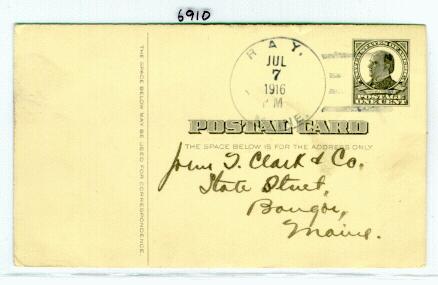 6910
RAY.
JUL
7
1916
M
POSTAGE
ONE CENT
POSTAL CARD
THE SPACE BELOW IS FOR THE ADDRESS ONLY
THE SPACE BELOW MAY BE USED FOR CORRESPONDENCE
John T. Clark & Co.
State Street,
Bangor,
Maine.